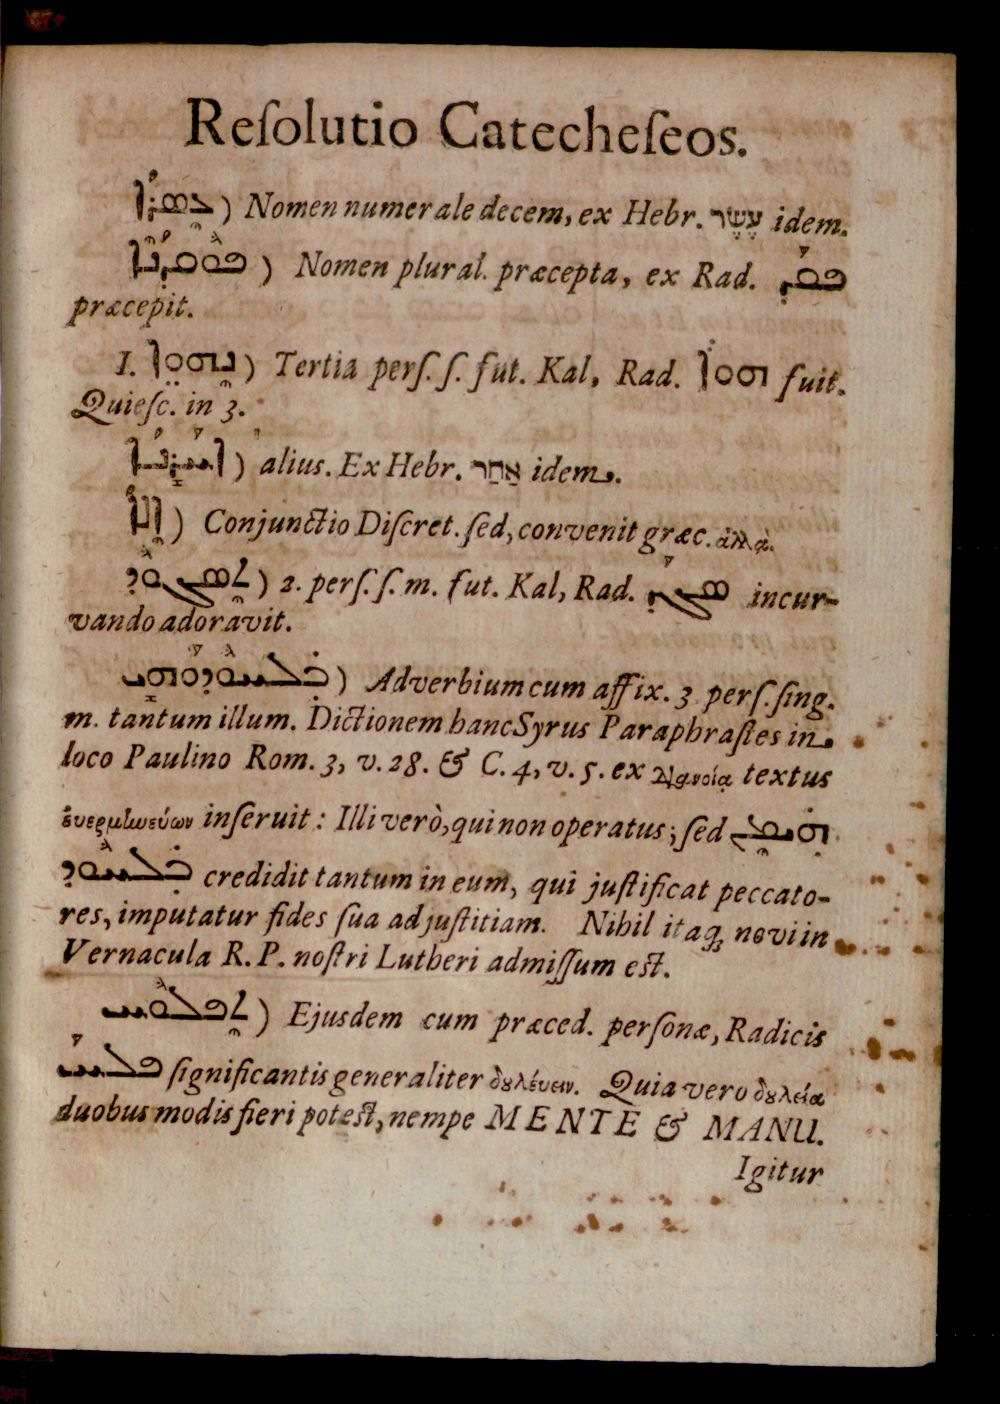 Reſolutio Catecheſeos.
ܥܣܪܐ ) Nomen numerale decem, ex Hebr. עֶשֶׂר idem.
ܦܘܩܕܢܐ ) Nomen plural. præcepta, ex Rad. ܦܩܕ
præcepit.
1. ܢܗܘܐ ) Tertia perſ. ſ. fut. Kal, Rad. ܗܘܐ fuit.
Quieſc. in 3.
ܐܚܪܢܐ ) alius. Ex Hebr. אַחַר idem.
ܐܠܐ ) Conjunctio Diſcret. ſed, convenit græc. ἀλλά.
ܬܣܓܘܕ ) 2. perſ. ſ. m. fut. Kal, Rad. ܣܓܕ incur-
vando adoravit.
ܒܠܚܘܕܘܗܝ ) Adverbium cum affix. 3 perſ. ſing.
m. tantum illum. Dictionem hanc Syrus Paraphraſtes in
loco Paulino Rom. 3, v. 28. & C. 4, v. 5. ex textus
inſeruit: Illi verò, qui non operatus; ſed
ܒܠܚܘܕ credidit tantum in eum, qui juſtificat peccato-
res, imputatur fides ſua ad juſtitiam. Nihil itaq; novi in
Vernacula R. P. noſtri Lutheri admiſſum eſt.
ܬܦܠܘܚ ) Ejusdem cum præced. perſonæ, Radicis
ܦܠܚ ſignificantis generaliter δουλέυειν. Quia vero δουλεία
duobus modis fieri poteſt, nempe MENTE & MANU.
Igitur